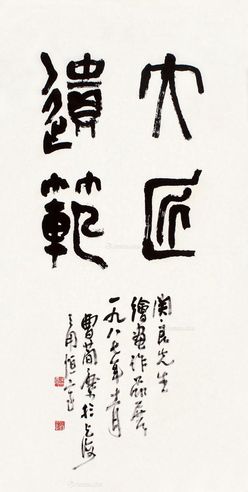 大匠
遺範
関良先生
繪畫作品展
一九八七年十一月
曹簡樓於上海